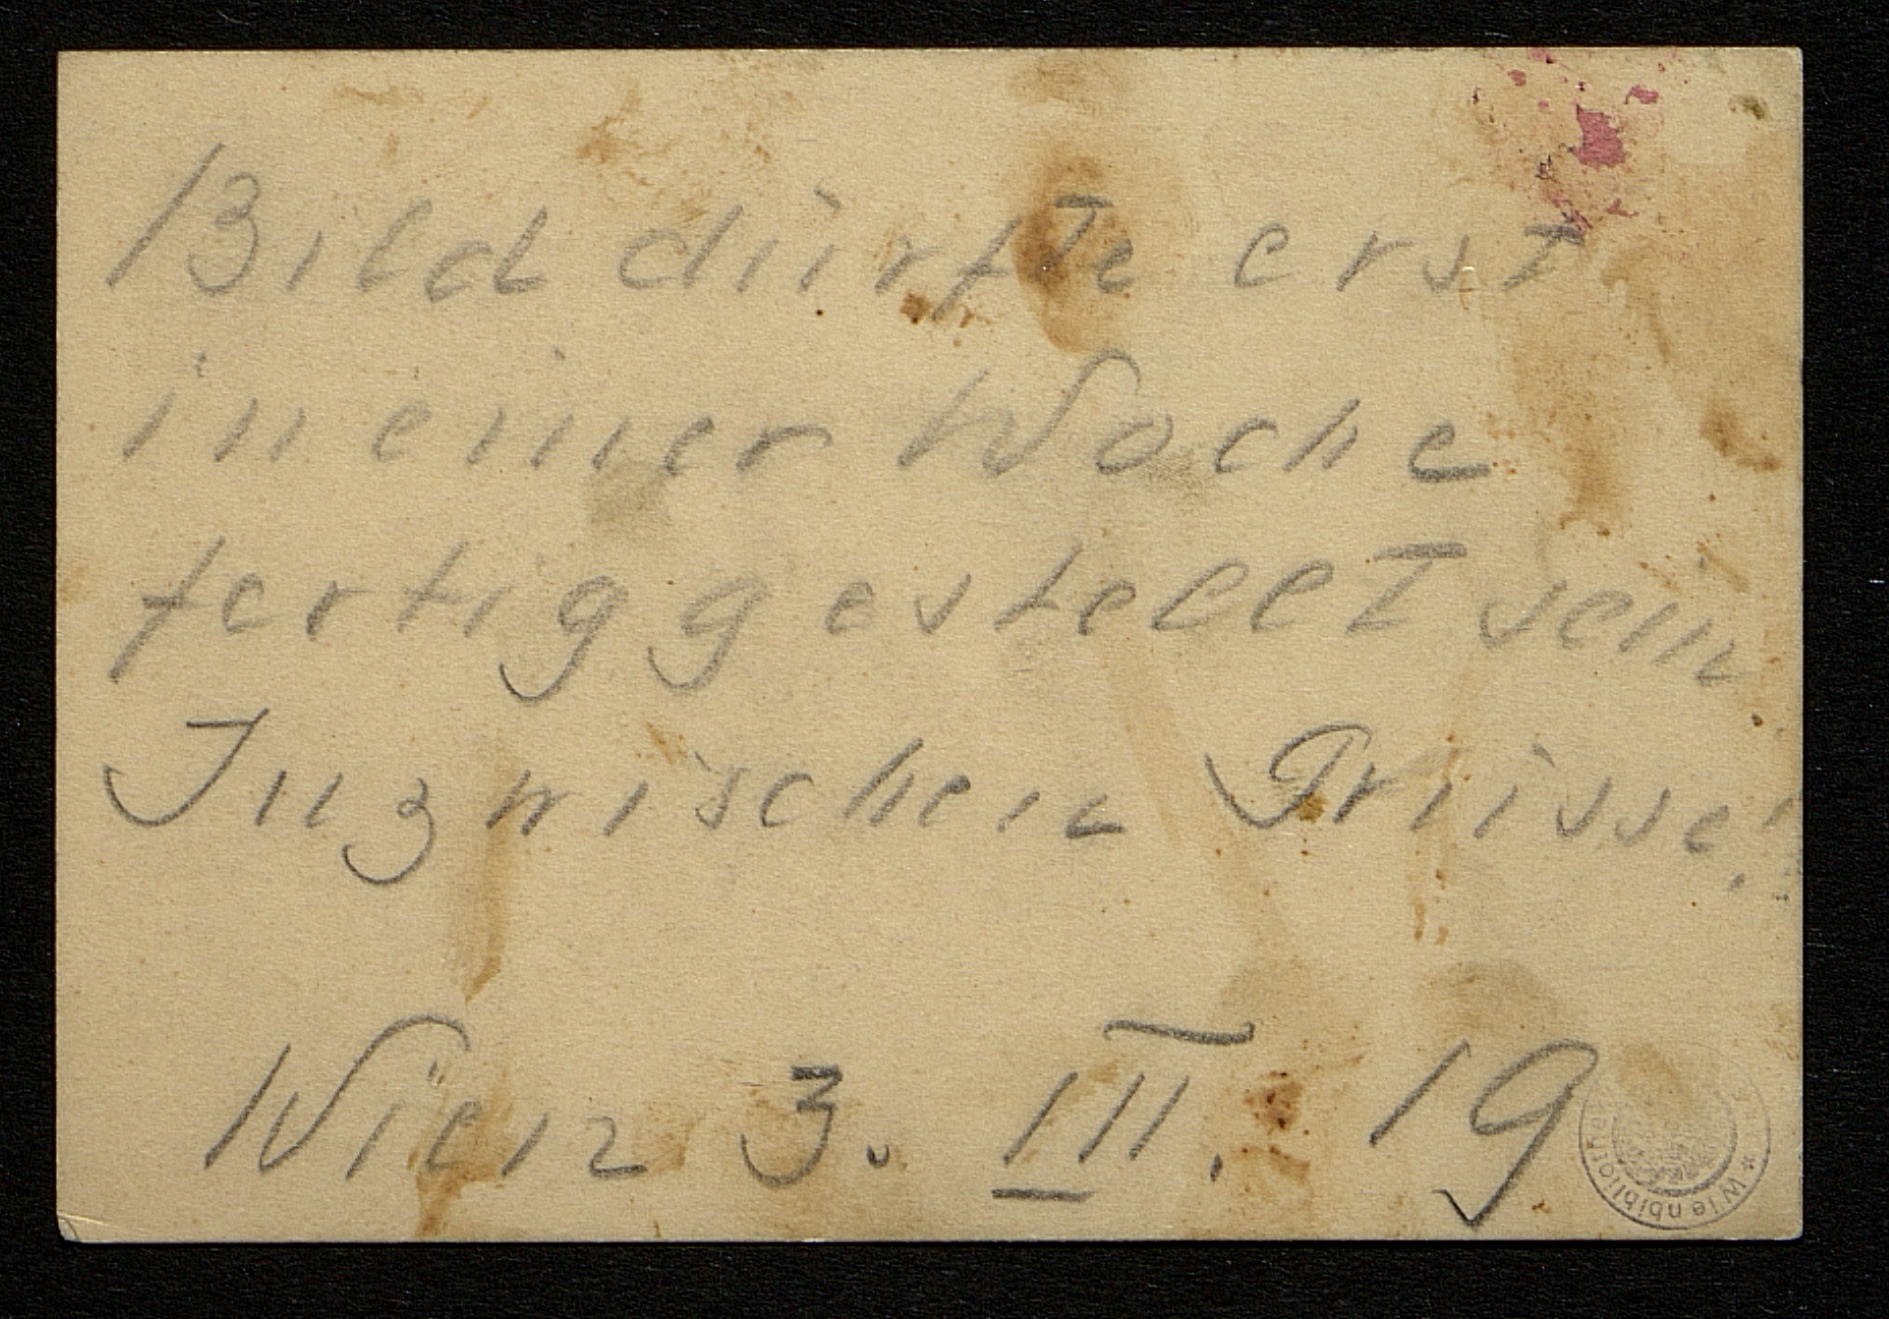 Bild dürfte erst
in einer Woche
fertiggestellt sein
Inzwischen Grüsse!
Wien 3. III. 19
Wienbibliothek